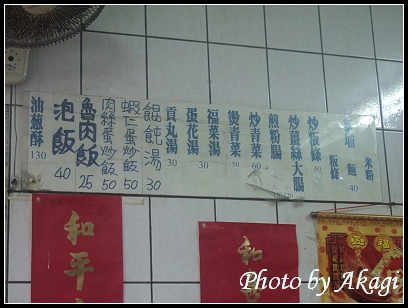 油蔥酥 130
泡飯 40
魯肉飯 25
肉絲蛋炒飯 50
蝦仁蛋炒飯 50
餛飩湯 30
貢丸湯 30
蛋花湯 30
福菜湯
燙青菜 50
炒青菜 60
煎粉腸
炒薑絲大腸 120
炒粄條 50
粄條
麵 40
米粉
和平
和
Photo by Akagi